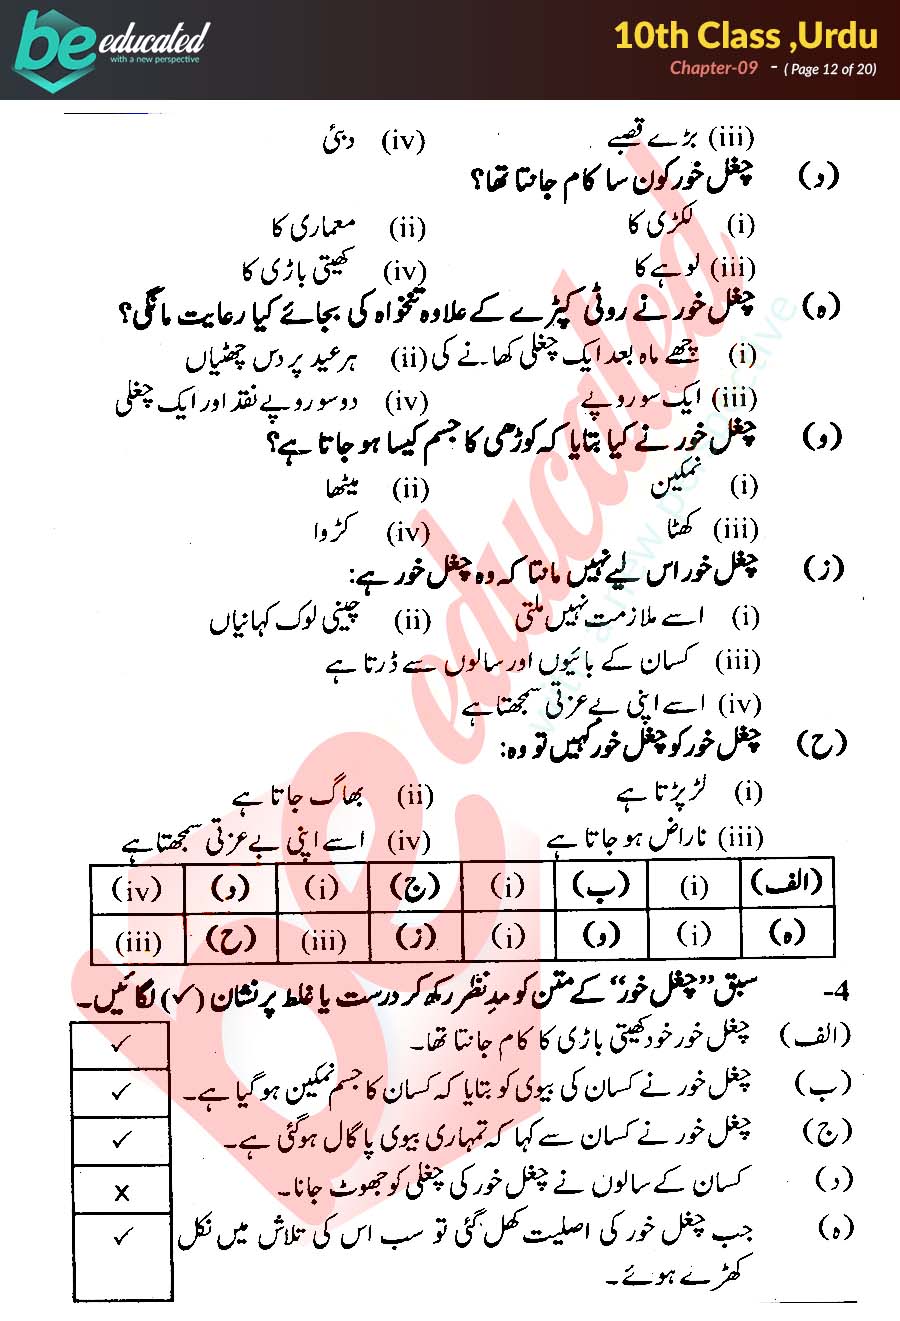 be educated
with a new perspective
10th Class ,Urdu
Chapter-09 - ( Page 12 of 20)
(iii) بڑے قصبے (iv) دبئی
(د) چغل خور کون سا کام جانتا تھا؟
(i) لکڑی کا (ii) معماری کا
(iii) لوہے کا (iv) کھیتی باڑی کا
(ہ) چغل خور نے روٹی کپڑے کے علاوہ تنخواہ کی بجائے کیا رعایت مانگی؟
(i) چھے ماہ بعد ایک چغلی کھانے کی (ii) ہر عید پر دس چھٹیاں
(iii) ایک سو روپے (iv) دو سو روپے نقد اور ایک چغلی
(و) چغل خور نے کیا بتایا کہ کوڑھی کا جسم کیسا ہو جاتا ہے؟
(i) نمکین (ii) میٹھا
(iii) کھٹا (iv) کڑوا
(ز) چغل خور اس لیے نہیں مانتا کہ وہ چغل خور ہے:
(i) اسے ملازمت نہیں ملتی (ii) چینی لوک کہانیاں
(iii) کسان کے بائیوں اور سالوں سے ڈرتا ہے
(iv) اسے اپنی بے عزتی سمجھتا ہے
(ح) چغل خور کو چغل خور کہیں تو وہ:
(i) لڑ پڑتا ہے (ii) بھاگ جاتا ہے
(iii) ناراض ہو جاتا ہے (iv) اسے اپنی بے عزتی سمجھتا ہے
(الف) (i) (ب) (i) (ج) (i) (د) (iv)
(ہ) (i) (و) (i) (ز) (iii) (ح) (iii)
4- سبق ”چغل خور“ کے متن کو مدِنظر رکھ کر درست یا غلط پر نشان (✓) لگائیں۔
(الف) چغل خور خود کھیتی باڑی کا کام جانتا تھا۔ ✓
(ب) چغل خور نے کسان کی بیوی کو بتایا کہ کسان کا جسم نمکین ہو گیا ہے۔ ✓
(ج) چغل خور نے کسان سے کہا کہ تمہاری بیوی پاگال ہوگئی ہے۔ ✓
(د) کسان کے سالوں نے چغل خور کی چغلی کو جھوٹ جانا۔ x
(ہ) جب چغل خور کی اصلیت کھل گئی تو سب اس کی تلاش میں نکل ✓
کھڑے ہوئے۔